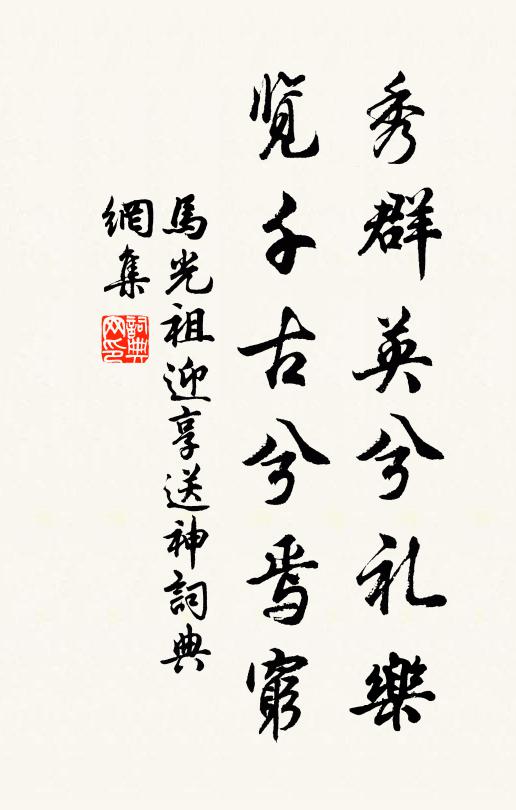 秀群英兮礼樂
覽千古兮焉窮
馬光祖迎享送神詞典
網集
詞典網印